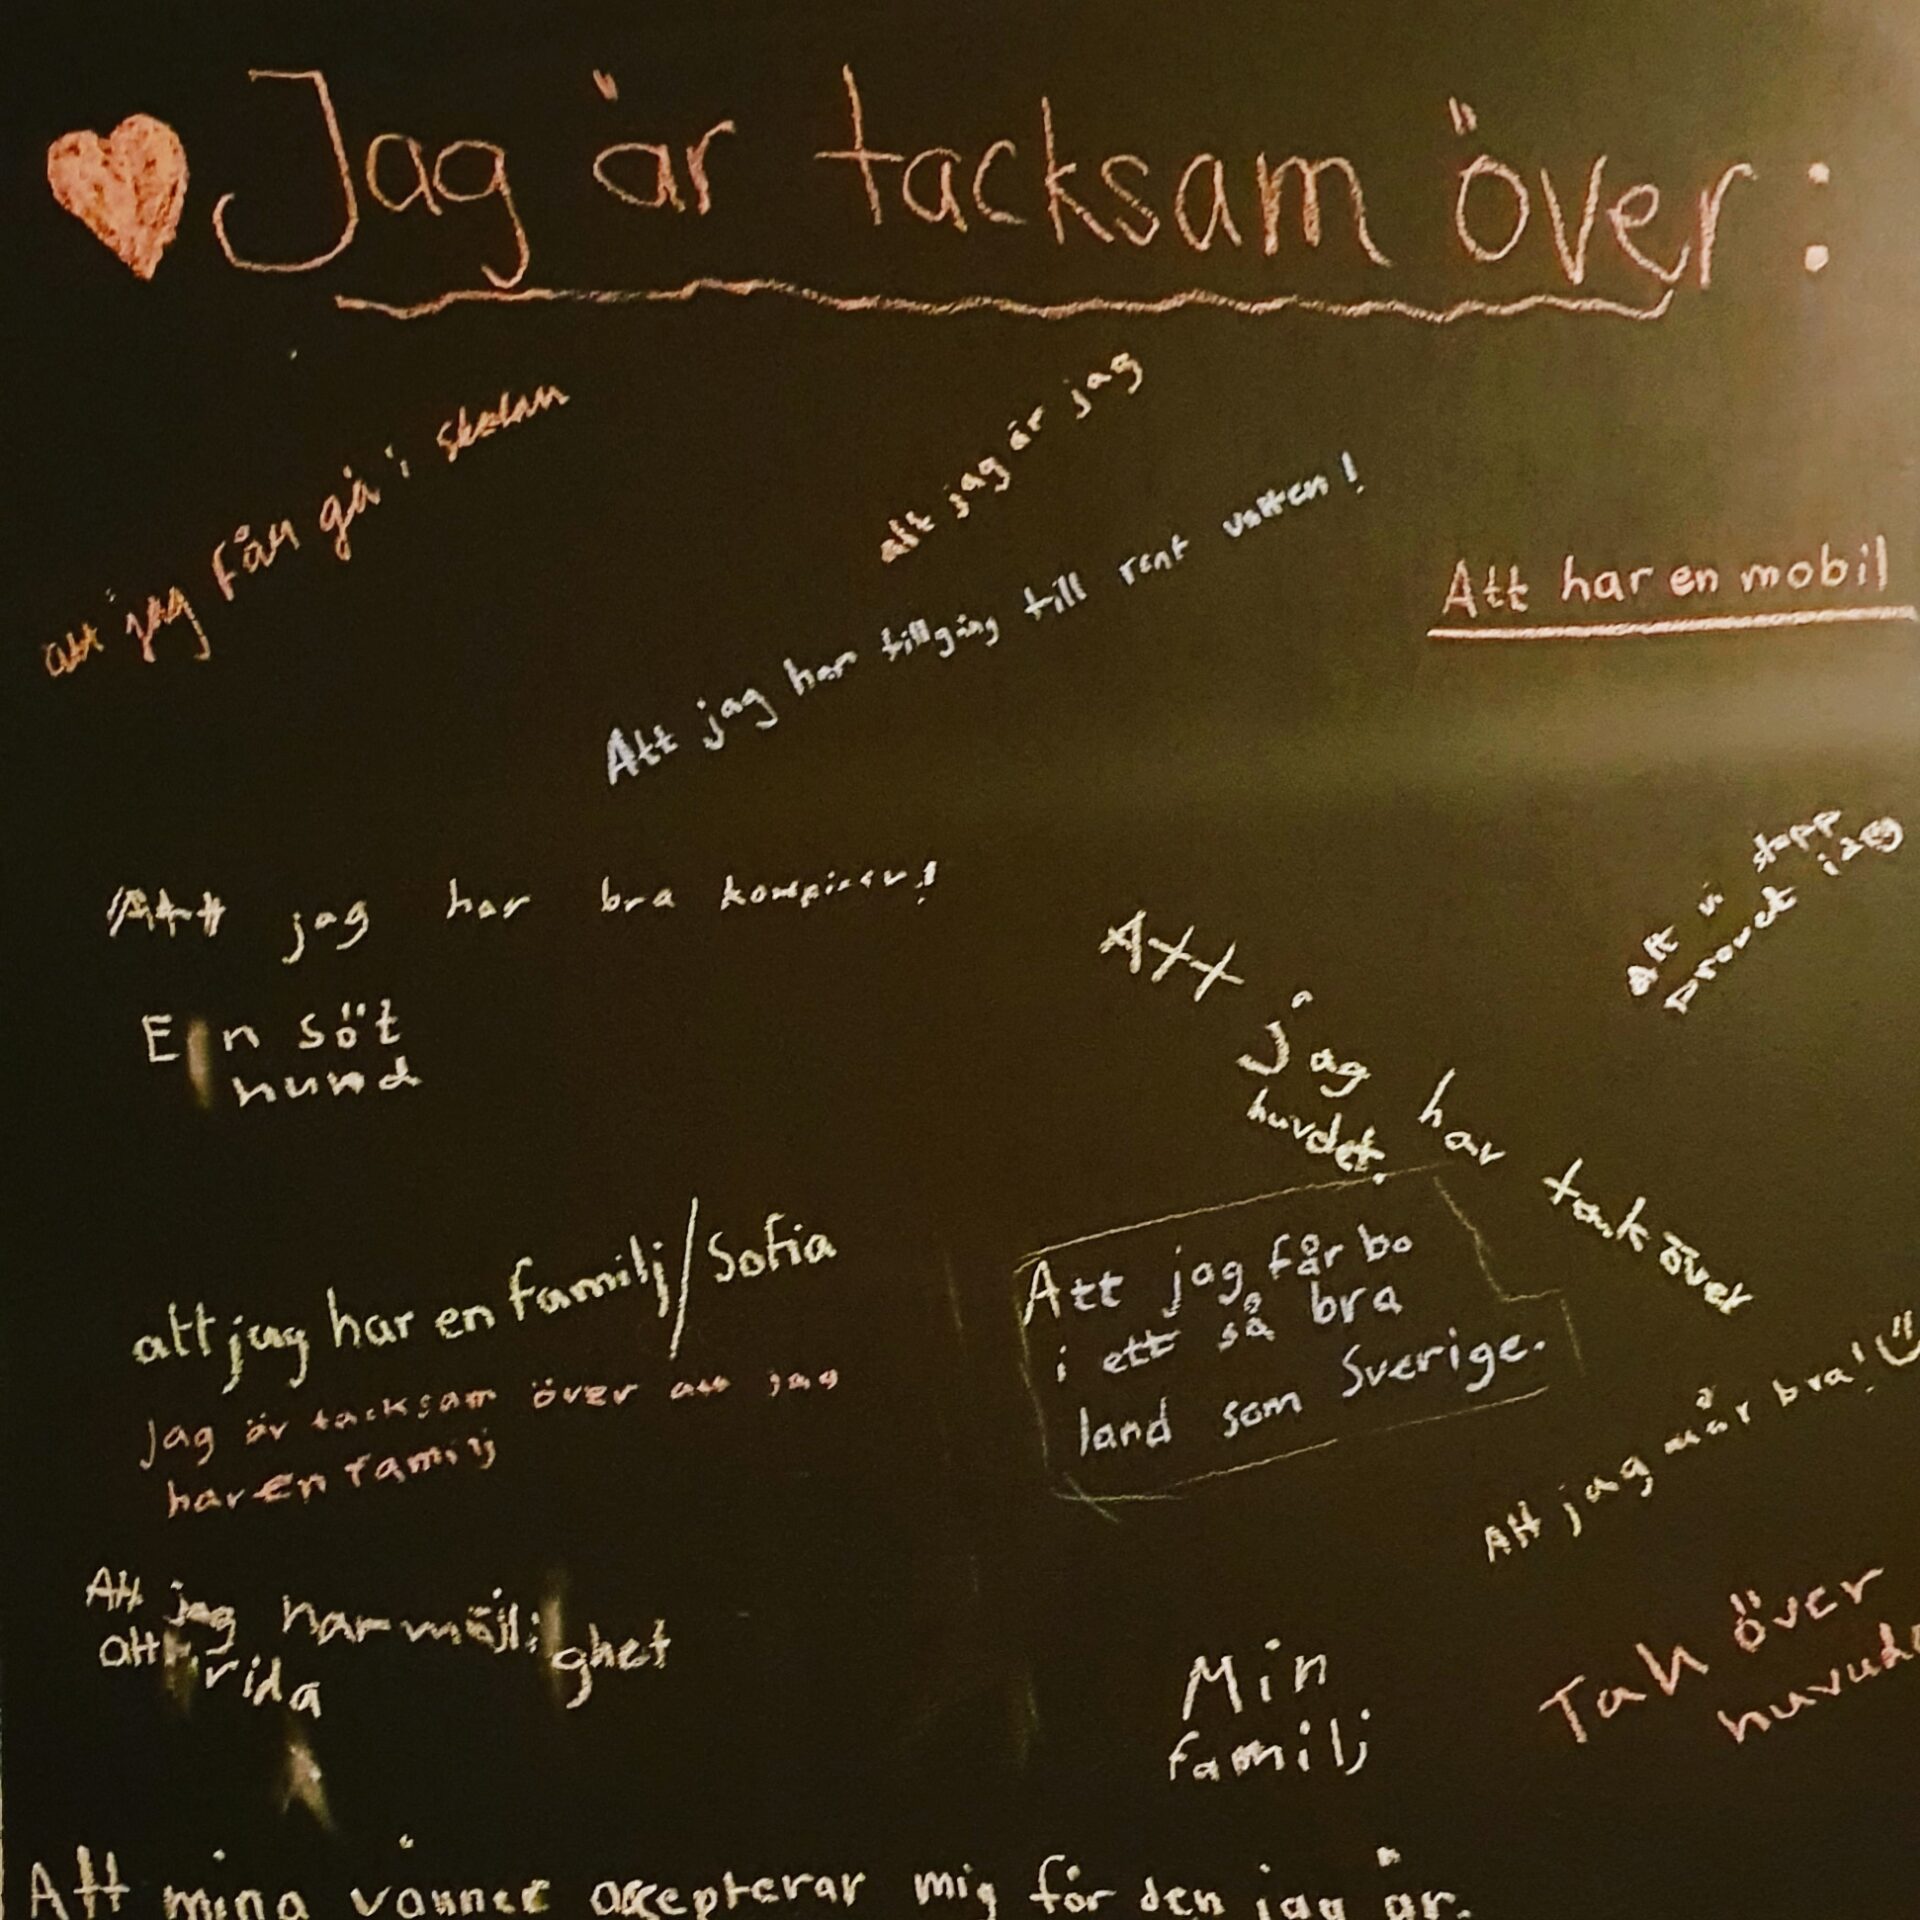 Jag är tacksam över:
att jag får gå i skolan
att jag är jag
Att jag har tillgång till rent vatten!
Att har en mobil
Att jag har bra kompisar!
Att vi slapp
provet idag
En söt
hund
Att jag har tak över
huvdet.
att jag har en familj/Sofia
Jag är tacksam över att jag
har en familj
Att jag får bo
i ett så bra
land som Sverige.
Att jag mår bra!
Att jag har möjlighet
att rida
Min
familj
Tak över
Att mina vänner accepterar mig för den jag är.